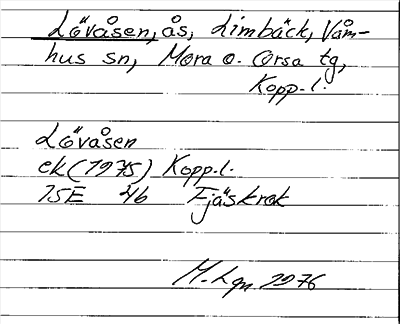 Lövåsen, ås, Limbäck, Våm-
hus sn, Mora o. Orsa tg,
Kopp.l.
Lövåsen
ek (1975) Kopp.l.
15E 4b Fjäskrok
M. Lgn 1976